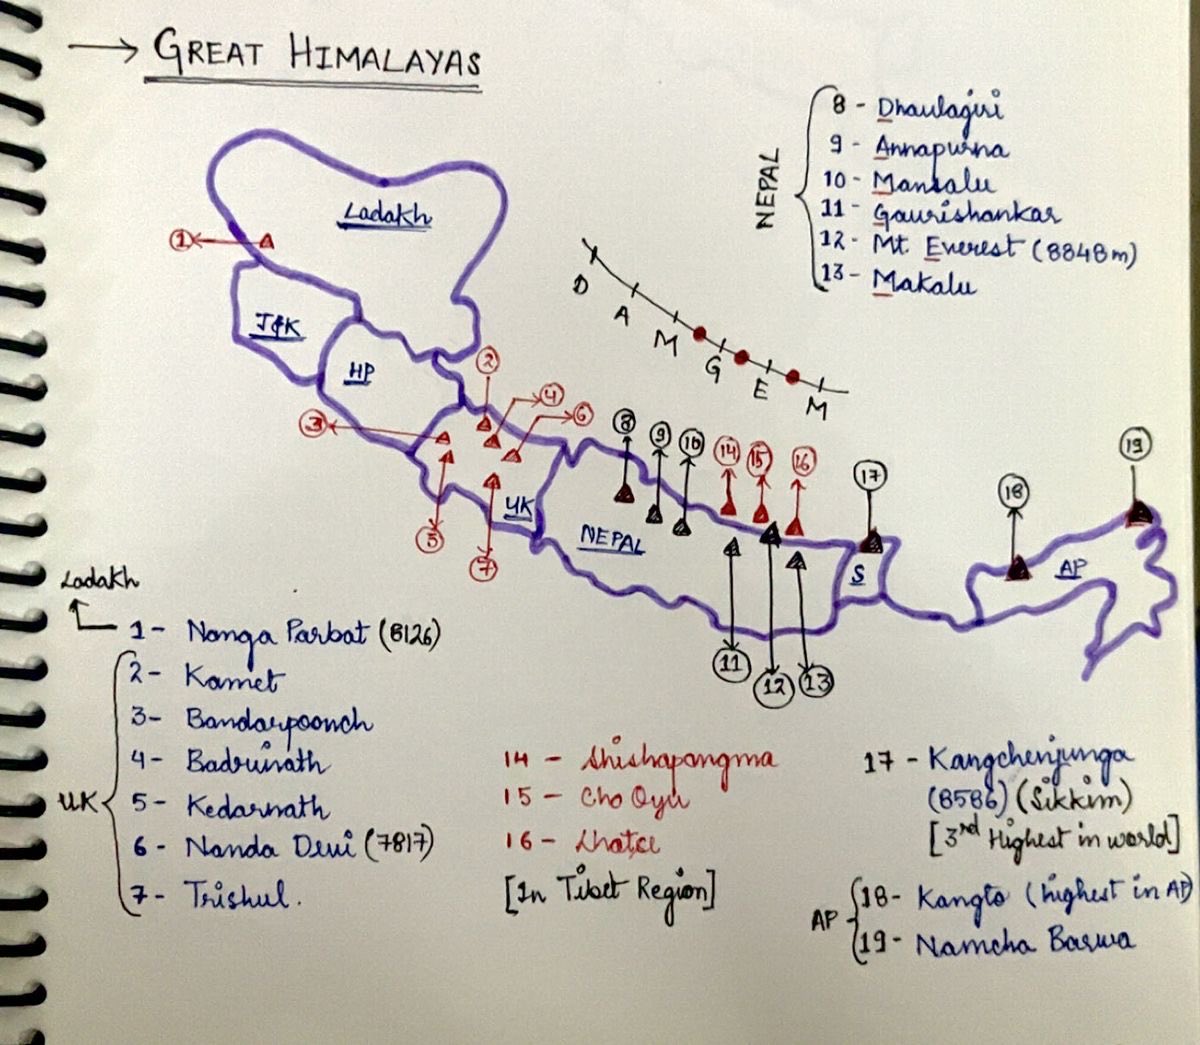 → GREAT HIMALAYAS
8 - Dhaulagiri
9 - Annapurna
10 - Mansalu
11 - Gaurishankar
12 - Mt. Everest (8848m)
13 - Makalu
NEPAL
Ladakh
1
J&K
HP
D
A
M
G
E
M
2
4
6
3
5
7
UK
8
9
10
14
15
16
17
18
19
NEPAL
S
AP
11
12
13
Ladakh
1 - Nanga Parbat (8126)
UK
2 - Kamet
3 - Bandarpoonch
4 - Badrinath
5 - Kedarnath
6 - Nanda Devi (7817)
7 - Trishul.
14 - Shishapangma
15 - Cho Oyu
16 - Lhatse
[In Tibet Region]
17 - Kangchenjunga
(8586) (Sikkim)
[3rd Highest in world]
AP
18 - Kangto (highest in AP)
19 - Namcha Barwa